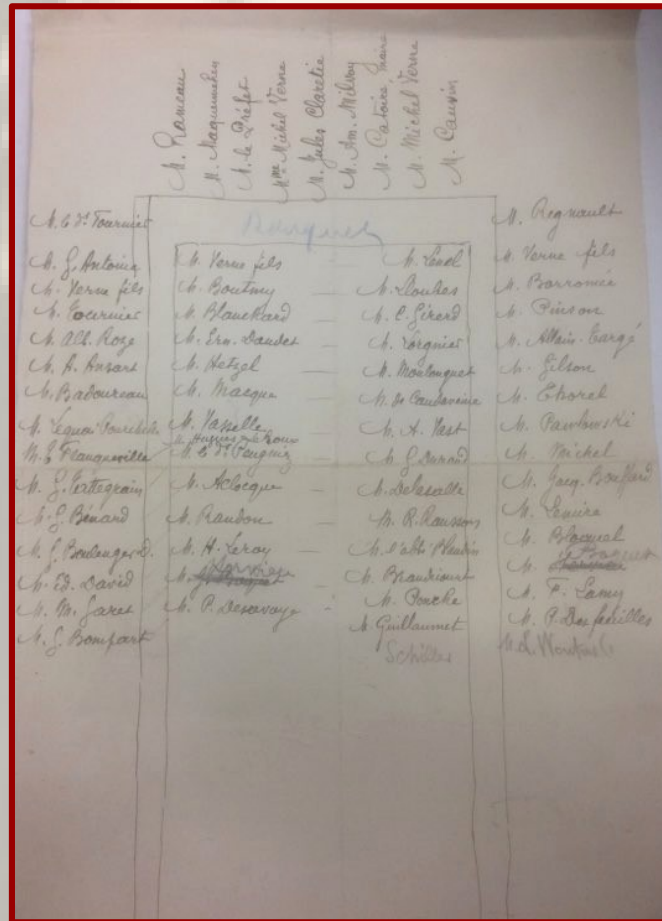 M. Rameau
M.
M. le Préfet
Mme Michel Verne
M. Jules Claretie
M. Am. Milvoy
M. Catoire, Maire
M. Michel Verne
M. Cauvin
M. Fournier
M. G. Antoine
M. Verne fils
M. Fournier
M. Alb. Roze
M. A. Ansart
M. Badoureau
M.
M. Franqueville
M. G. Tattegrain
M. G. Bénard
M. G. Boulanger D.
M. Ed. David
M. M. Garet
M. G. Bompart
M. Verne fils
M. Boutmy
M. Blanchard
M. Ern. Daudet
M. Hetzel
M. Macque
M. Vasselle
M. Hugues le Roux
M.
M. Aclocque
M. Randon
M. H. Leroy
M.
M. P. Descavoye
M.
M. Doubes
M. E. Girerd
M. Lorgnier
M. Moulonguet
M. de Caudaveine
M. A. Vast
M. G. Durand
M. Delesalle
M. R. Raussons
M. l'abbé Blandin
M. Beaudriourt
M. Ponche
M. Guillaumet
M. Regnault
M. Verne fils
M. Borromée
M. Pinson
M. Allain-Targé
M. Gilson
M. Thorel
M. Pawlowski
M. Michel
M. Jacq. Bouffard
M. Lemire
M. Blocquel
M.
M. F. Lamy
M. P. Desfeuilles